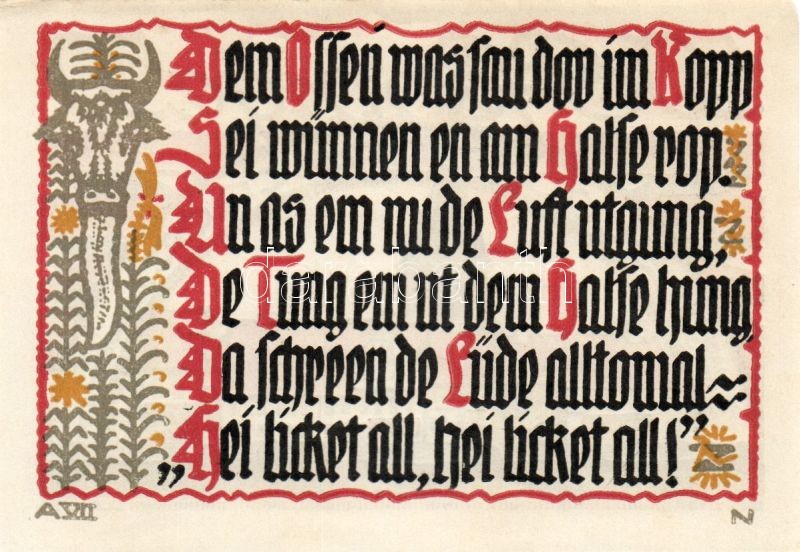 Dem Ossen was sau dov im Kopp
Sei wünnen en am Halse rop.
Un as em nu de Luft utgung,
De Tung em ut dem Halse hung,
Da schreen de Lüde alltomal~
„Hei licket all, hei licket all!"
A VII
N
darabanth